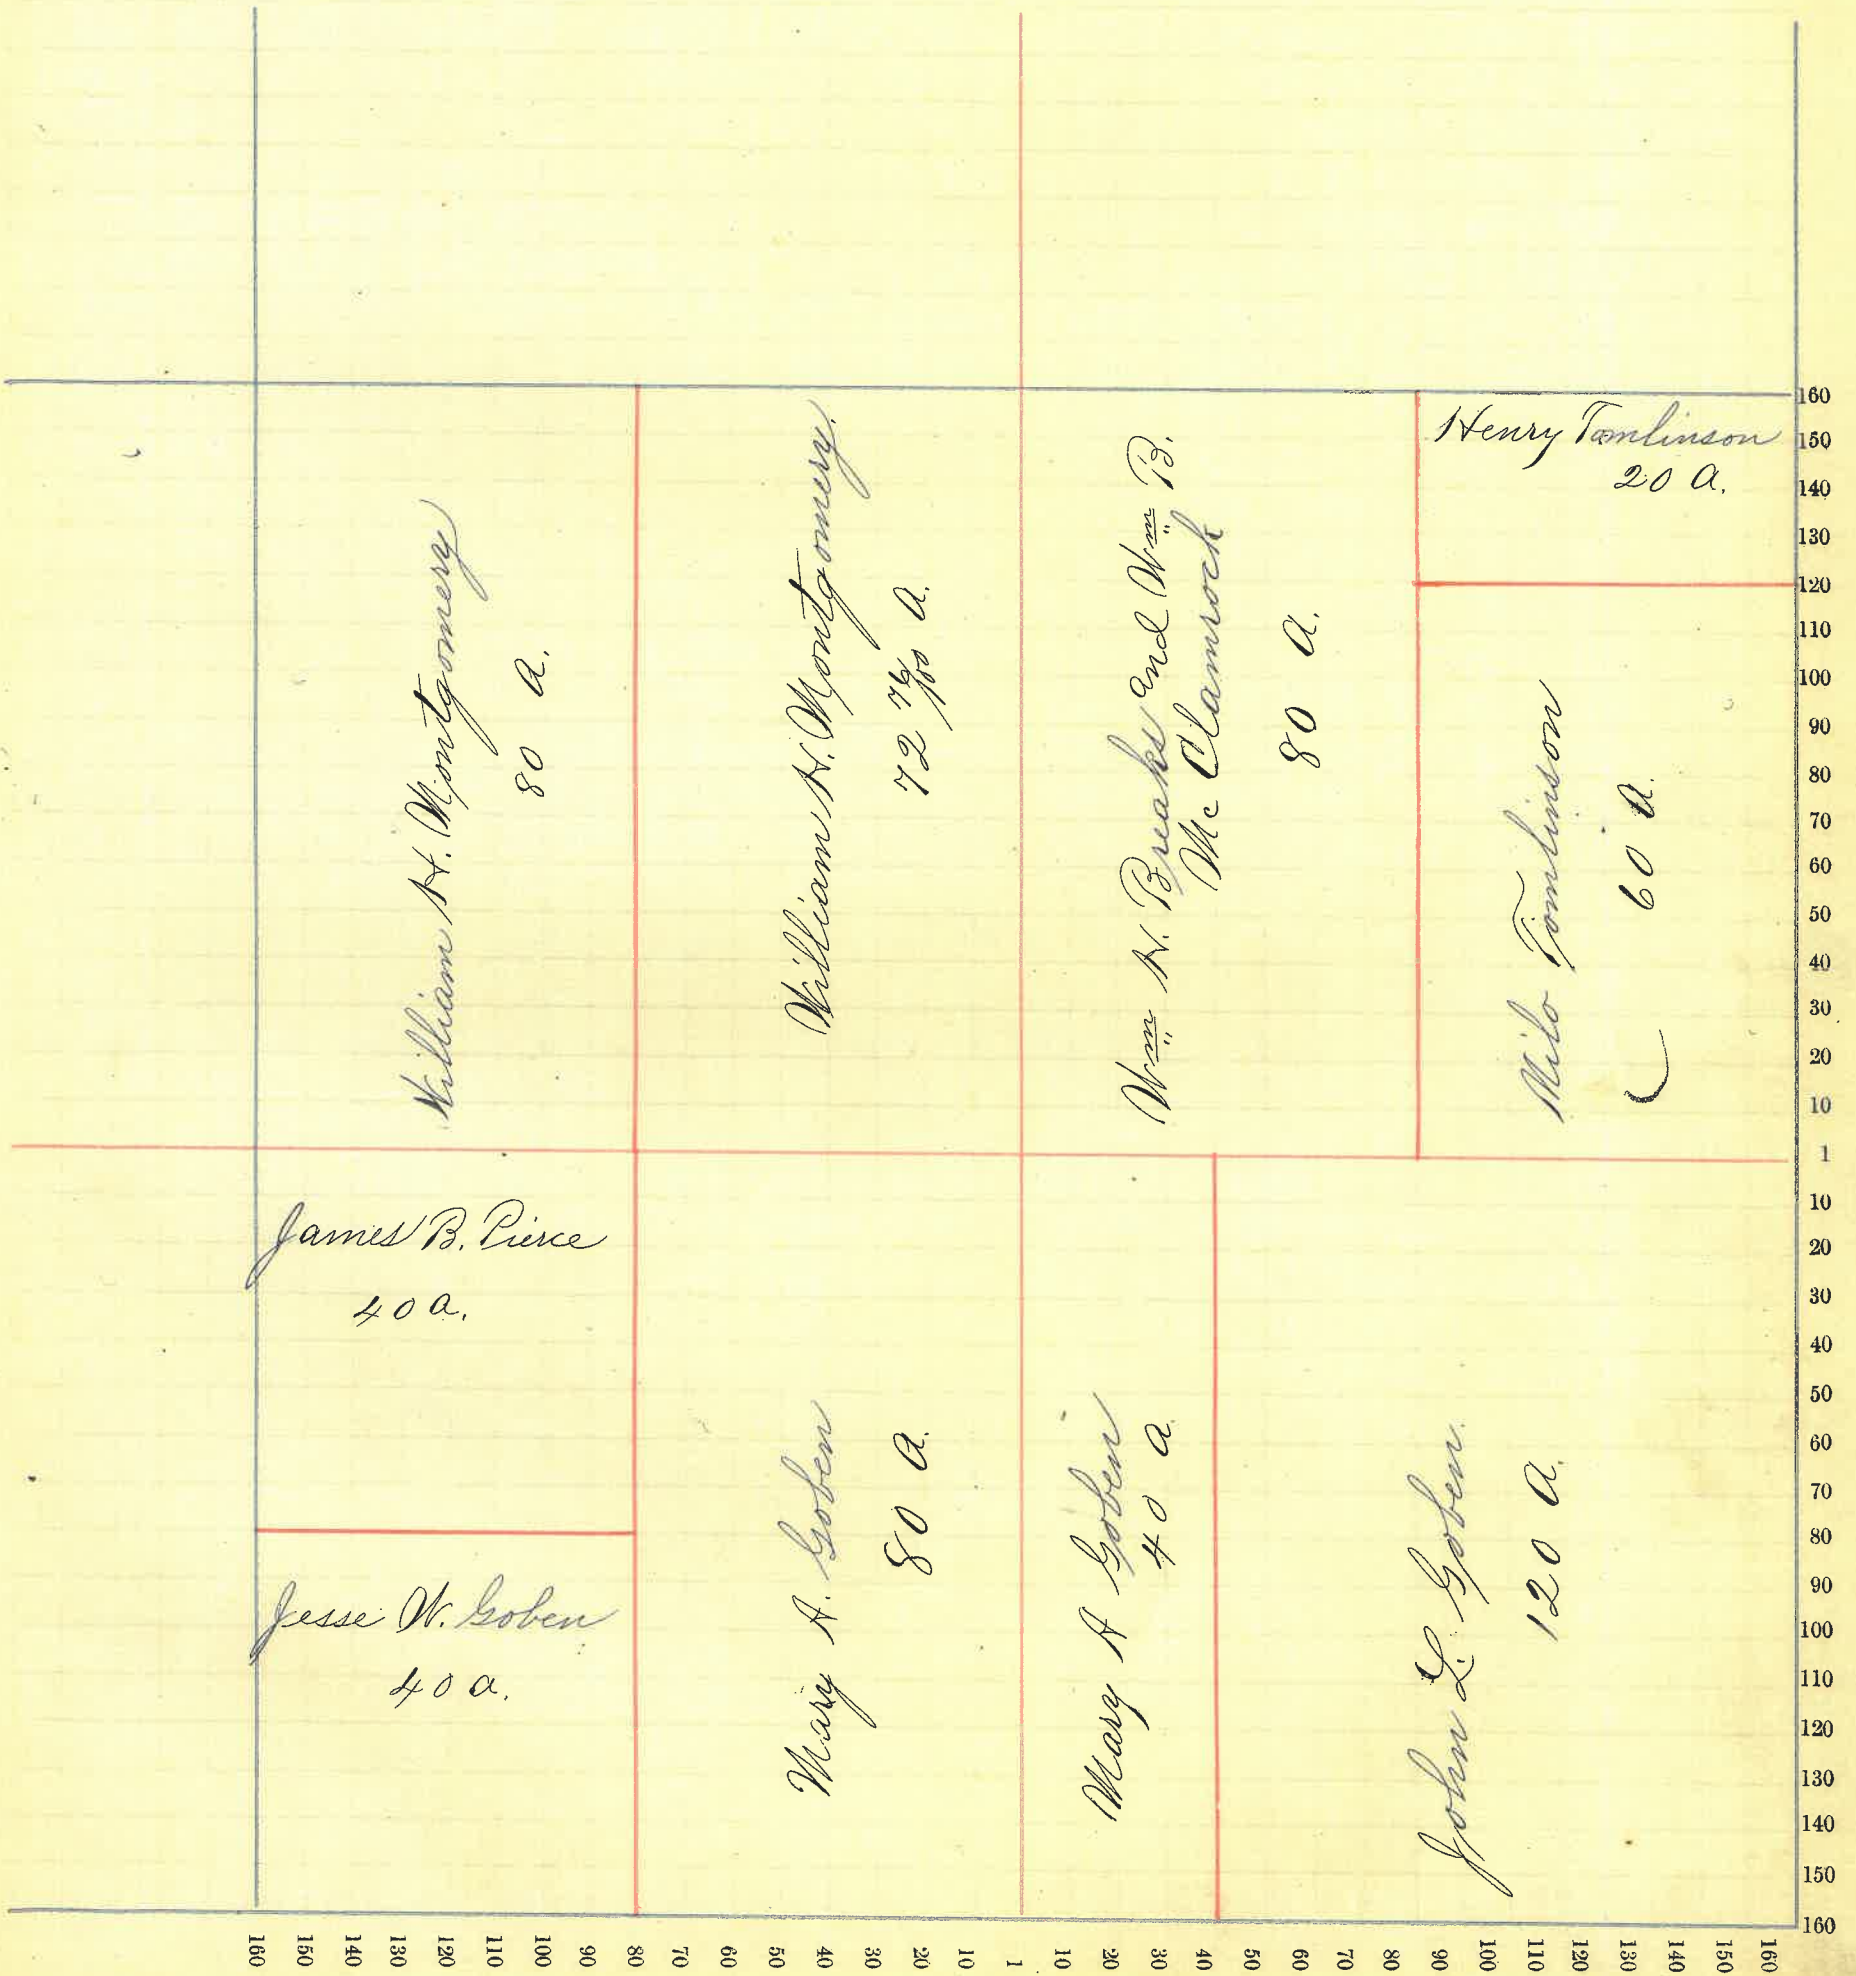 William H. Montgomery
80 A.
William H. Montgomery.
72 76/100 A.
Wm H. Breaks and Wm B.
McClamrock
80 A.
Henry Tomlinson
20 A.
Milo Tomlinson
60 A.
James B. Pierce
40 A.
Jesse W. Goben
40 A.
Mary A. Goben
80 A.
Mary A Goben
40 A
John L. Goben.
120 A.
160
150
140
130
120
110
100
90
80
70
60
50
40
30
20
10
1
10
20
30
40
50
60
70
80
90
100
110
120
130
140
150
160
160
150
140
130
120
110
100
90
80
70
60
50
40
30
20
10
1
10
20
30
40
50
60
70
80
90
100
110
120
130
140
150
160